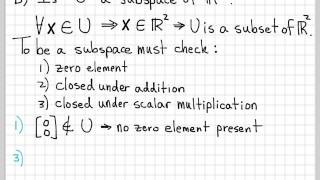 a subspace of
∀x∈U ⇒ x∈ℝ² → U is a subset of ℝ².
To be a subspace must check :
1) zero element
2) closed under addition
3) closed under scalar multiplication
1) [0 0] ∉ U → no zero element present
3)